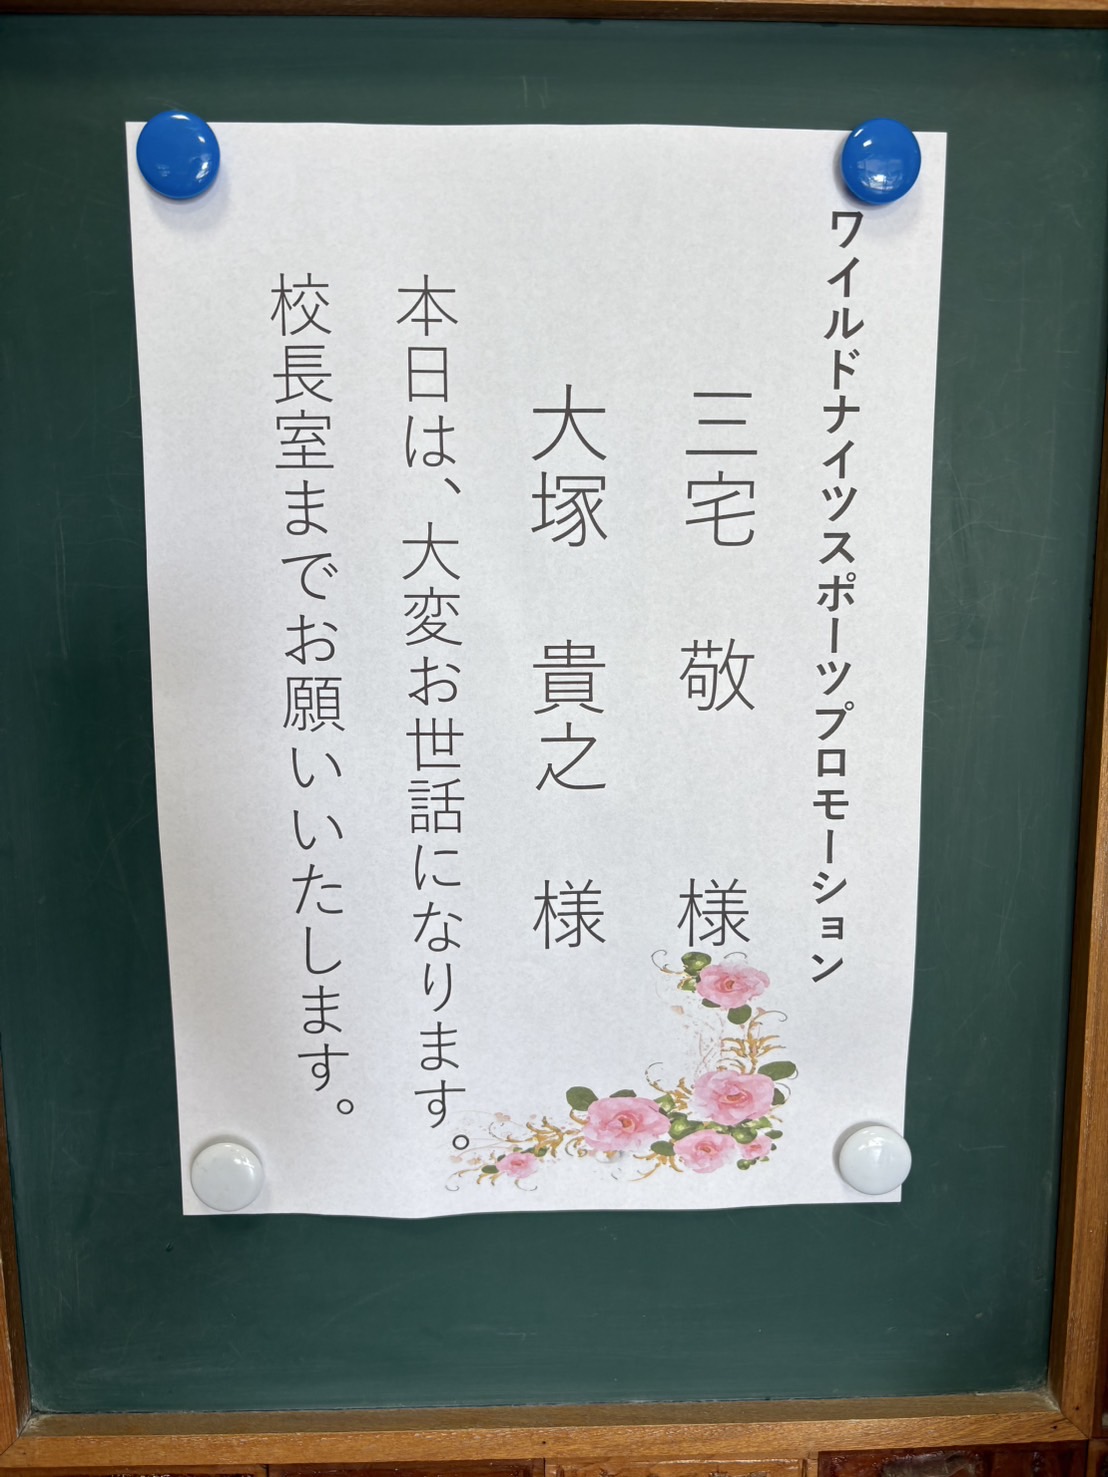 ワイルドナイツスポーツプロモーション
三宅　敬　様
大塚　貴之　様
本日は、大変お世話になります。
校長室までお願いいたします。